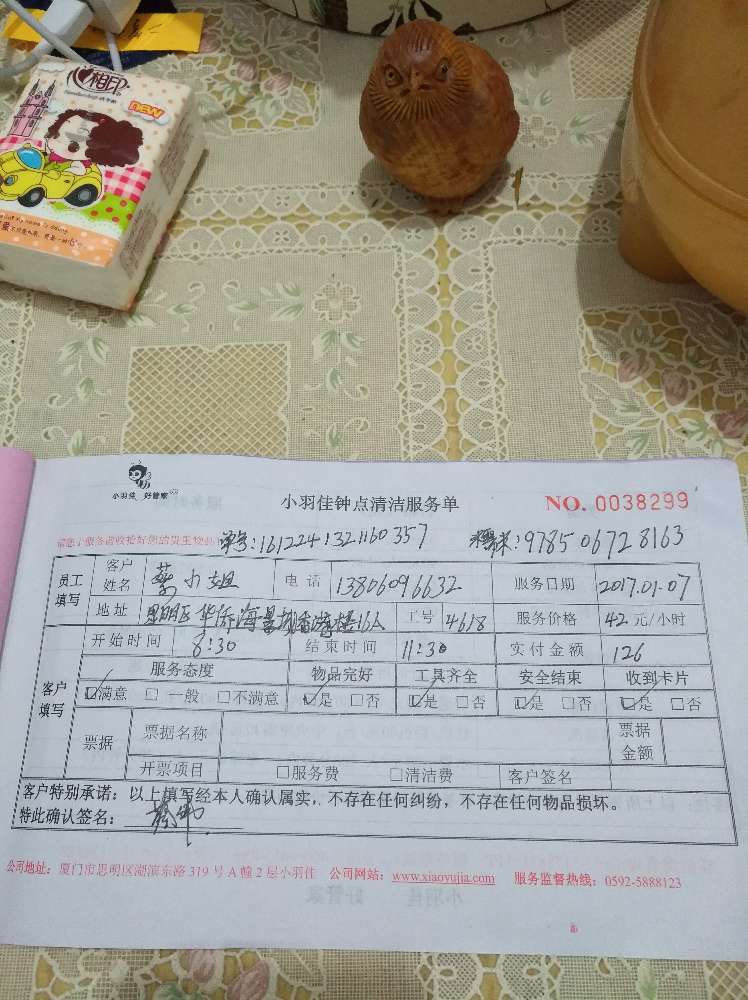 心相印
new
小羽佳 好管家
小羽佳钟点清洁服务单
NO. 0038299
单号:1612241321160357
9785 0672 8163
员工填写 客户姓名 蔡小姐 电话 13806096632 服务日期 2017.01.07
地址 思明区华侨海景城 16A 工号 4618 服务价格 42 元/小时
客户填写 开始时间 8:30 结束时间 11:30 实付金额 126
服务态度 物品完好 工具齐全 安全结束 收到卡片
☑满意 □一般 □不满意 ☑是 □否 ☑是 □否 ☑是 □否 ☑是 □否
票据 票据名称 票据金额
开票项目 □服务费 □清洁费 客户签名
客户特别承诺：以上填写经本人确认属实，不存在任何纠纷，不存在任何物品损坏。
特此确认签名：
公司地址：厦门市思明区湖滨东路 319 号 A 幢 2 层小羽佳 公司网站：www.xiaoyujia.com 服务监督热线：0592-5888123